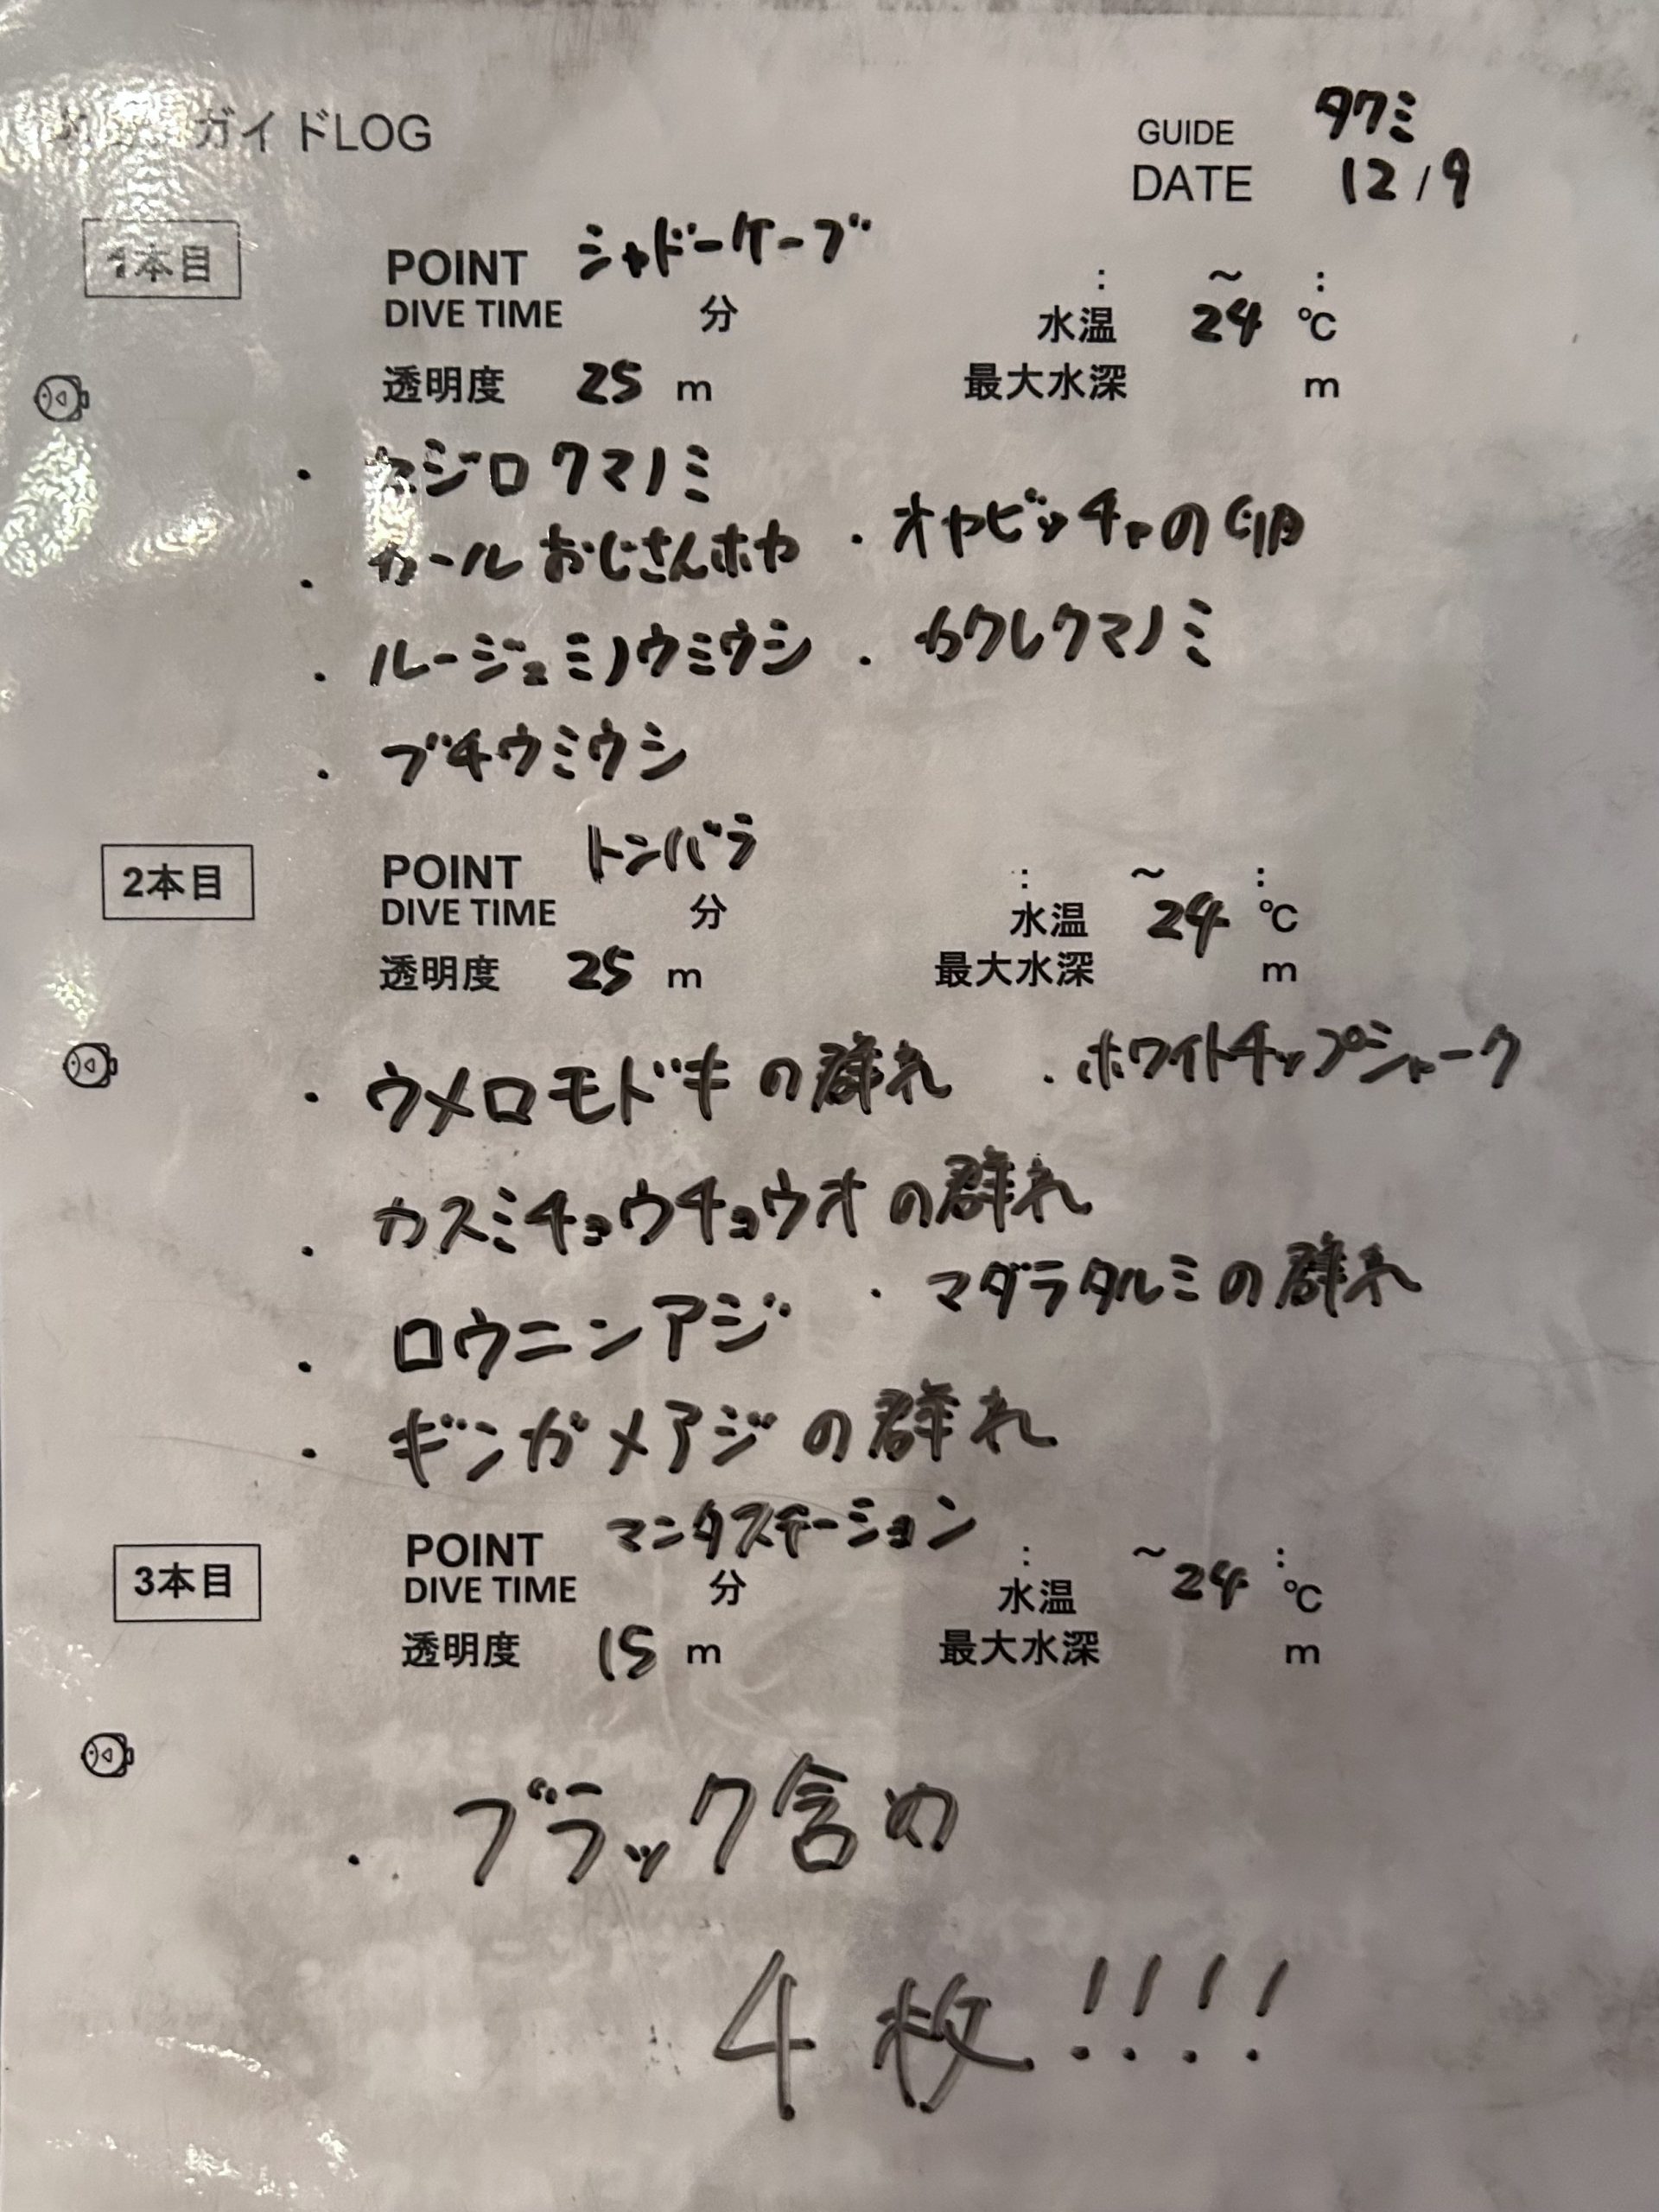 ガイドLOG
GUIDE タクミ
DATE 12/9
1本目
POINT シャドーケーブ : ~ :
DIVE TIME 分 水温 24 ℃
透明度 25 m 最大水深 m
・セジロクマノミ
・カールおじさんホヤ ・オヤビッチャの卵
・ルージュミノウミウシ ・カクレクマノミ
・ブチウミウシ
2本目
POINT トンバラ : ~ :
DIVE TIME 分 水温 24 ℃
透明度 25 m 最大水深 m
・ウメロモドキの群れ ・ホワイトチップシャーク
・カスミチョウチョウオの群れ
・ロウニンアジ ・マダラタルミの群れ
・ギンガメアジの群れ
3本目
POINT マンタステーション : ~ :
DIVE TIME 分 水温 24 ℃
透明度 15 m 最大水深 m
・ブラック含め
4枚!!!!